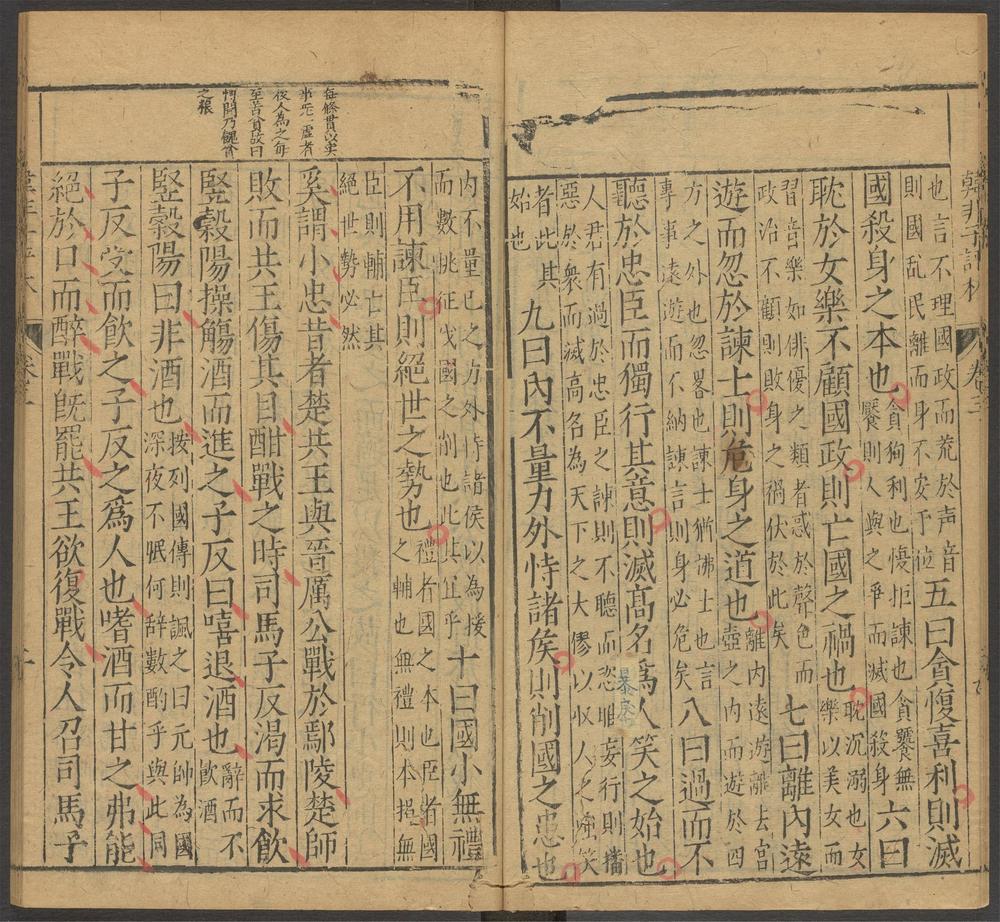 韓非子評林　卷三
也言不理國政而荒於声音
則國乱民離而身不安于位
五曰貪愎喜利則滅
國殺身之本也
貪狥利也愎拒諫也貪饕無
饜則人與之爭而滅國殺身
六曰
耽於女樂不顧國政則亡國之禍也
耽沉溺也女
樂以美女而
習音樂如俳優之類者惑於聲色而
政治不顧則敗身之禍伏於此矣
七曰離內遠
遊而忽於諫士則危身之道也
離内遠遊離去宫
壺之内而遊於四
方之外也忽畧也諫士猶拂士也言
事事遠遊而不納諫言則身必危矣
八曰過而不
聽於忠臣而獨行其意則滅髙名爲人笑之始也
人君有過於忠臣之諫則不聽而恣睢妄行則播
惡於衆而滅高名為天下之大僇以収人之嗤笑
者此其
始也
九曰內不量力外恃諸矦則削國之患也
每條貫以实
内不量已之力外恃諸侯以為援
而數挑征伐國之削也此其宜乎
十曰國小無禮
不用諫臣則絕世之勢也
禮者國之本也臣者國
之輔也無禮則本損無
臣則輔亡其
絕世勢必然
奚謂小忠昔者楚共王與晉厲公戰於鄢陵楚師
敗而共王傷其目酣戰之時司馬子反渴而求飲
竪穀陽操觴酒而進之子反曰嘻退酒也
辭而不
飲酒
竪穀陽曰非酒也
按列國傳則諷之曰元帥為國
深夜不眠何辞數酌乎與此同
子反受而飲之子反之爲人也嗜酒而甘之弗能
絕於口而醉戰旣罷共王欲復戰令人召司馬子